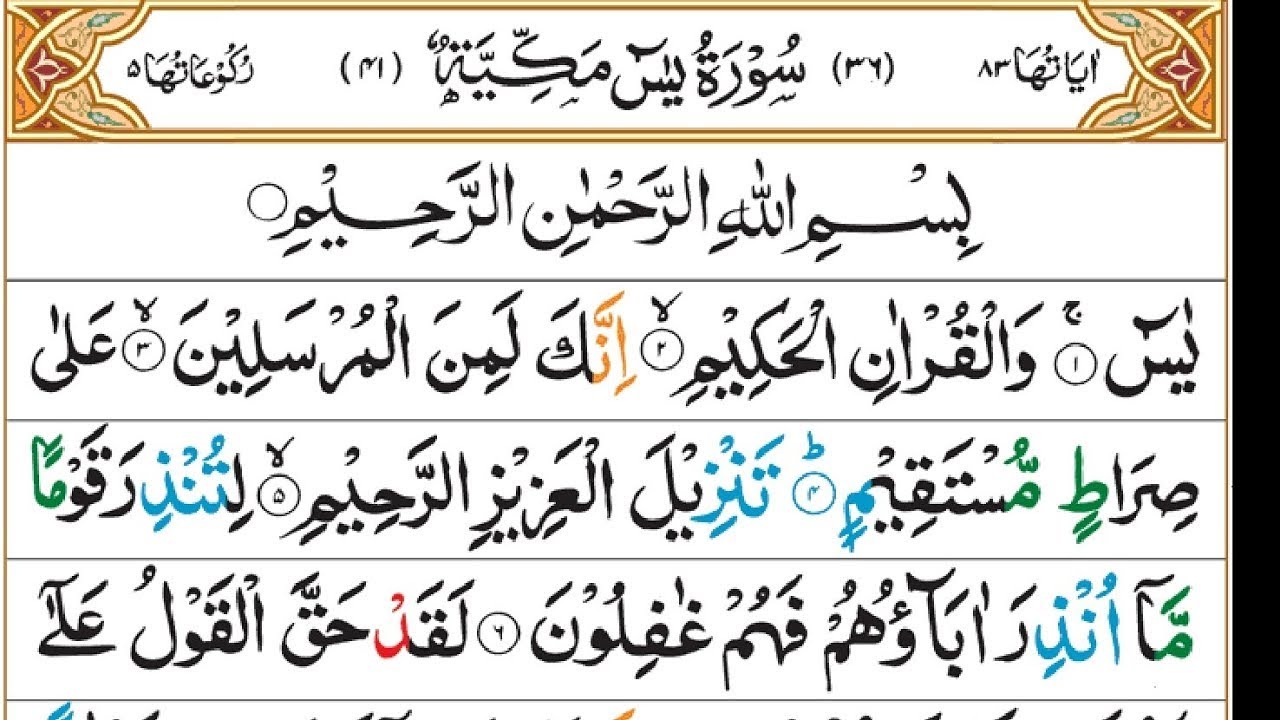 اٰيَاتُهَا ٨٣ (٣٦) سُوْرَةُ يٰسٓ مَكِّيَّةٌ (٤١) رُكُوْعَاتُهَا ٥
بِسْمِ اللّٰهِ الرَّحْمٰنِ الرَّحِيْمِ ○
يٰسٓ ۚ ﴿١﴾ وَالْقُرْاٰنِ الْحَكِيْمِ ۙ ﴿٢﴾ اِنَّكَ لَمِنَ الْمُرْسَلِيْنَ ۙ ﴿٣﴾ عَلٰى
صِرَاطٍ مُّسْتَقِيْمٍ ؕ ﴿٤﴾ تَنْزِيْلَ الْعَزِيْزِ الرَّحِيْمِ ۙ ﴿٥﴾ لِتُنْذِرَ قَوْمًا
مَّاۤ اُنْذِرَ اٰبَآؤُهُمْ فَهُمْ غٰفِلُوْنَ ﴿٦﴾ لَقَدْ حَقَّ الْقَوْلُ عَلٰۤى